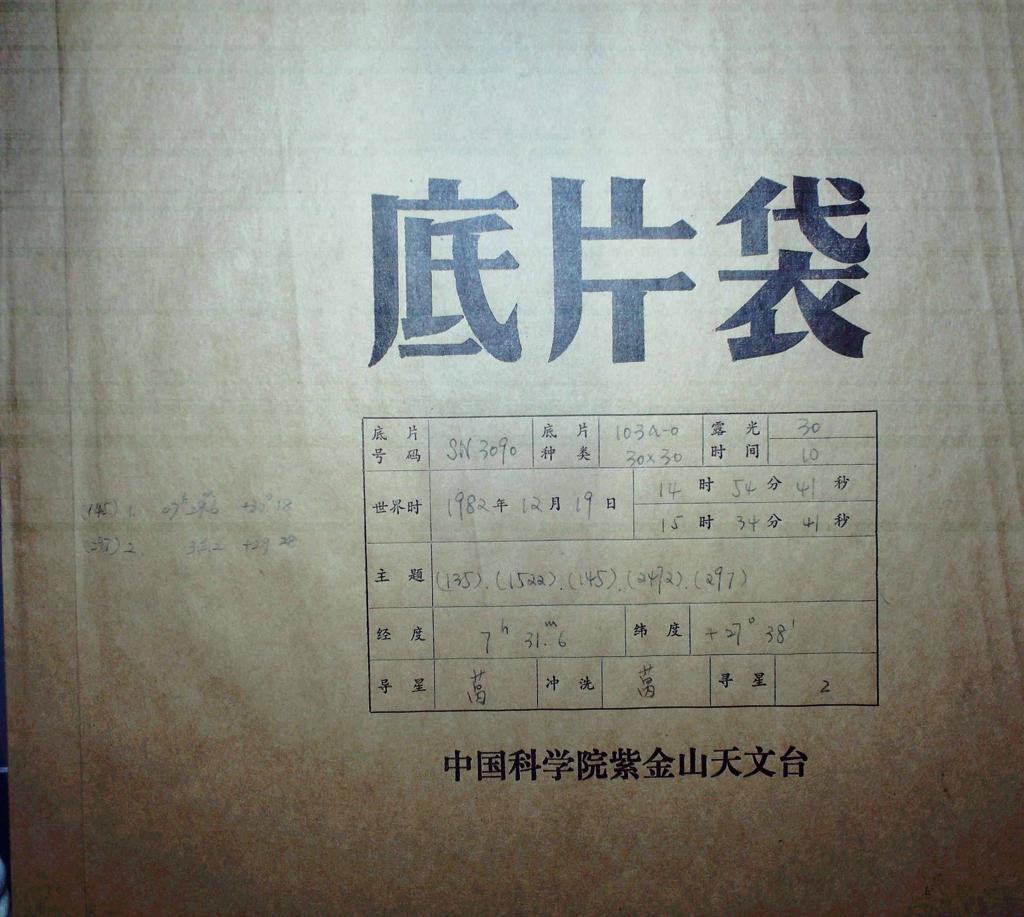 底片袋
底片号码 SN 3090 底片种类 103a-0 30×30 露光时间 30 10
世界时 1982年 12月 19日 14时 54分 41秒
15时 34分 41秒
主题 (135). (1522). (145). (2472). (297)
经度 7h 31m.6 纬度 +27° 38'
导星 萬 冲洗 萬 寻星 2
中国科学院紫金山天文台
(145) 1. 07h 29m.6 +30° 18
(297) 2.